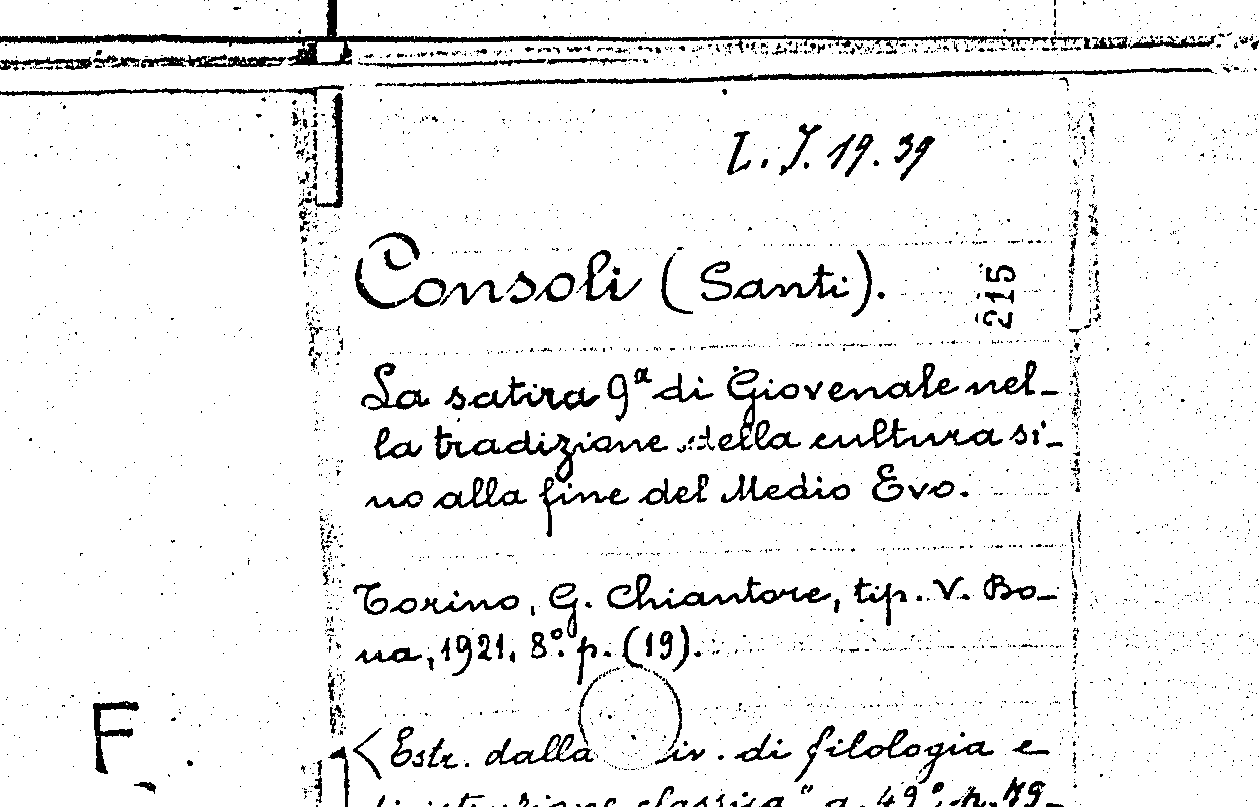 L. J. 19. 39
Consoli (Santi).
215
La satira 9ª di Giovenale nel-
la tradizione della cultura si-
no alla fine del Medio Evo.
Torino, G. Chiantore, tip. V. Bo-
na, 1921, 8º. p. (19).
F
(Estr. dalla iv. di filologia e
classica" a. 49º. p. 79-